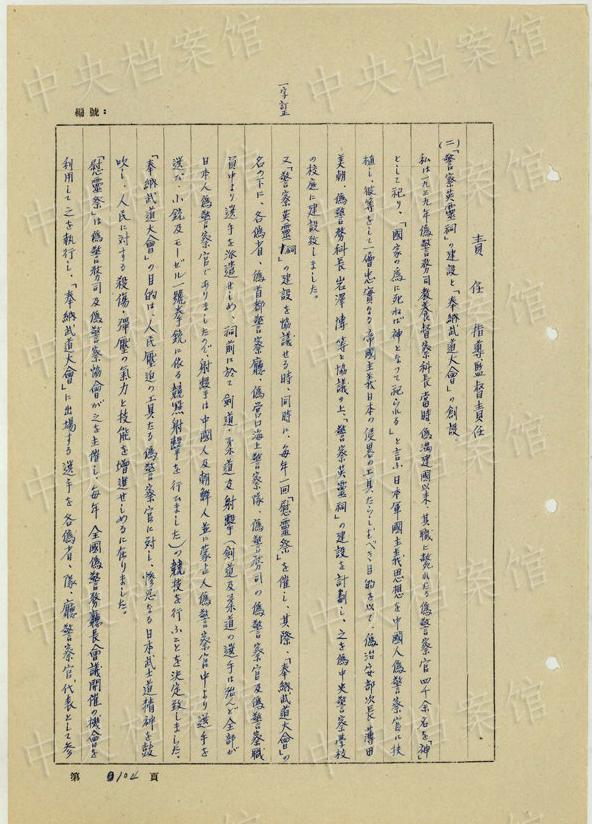 編號：
一字訂正
責任　指導監督責任
(二)「警察英靈祠」の建設と「奉納武道大會」の創設
私は一九三九年偽警務司教養督察科長當時偽滿建國以来、其職に斃れたる偽警察官四千余名を「神」
として祀り、「國家の為に死ねば神となつて祀られる」と言ふ日本軍國主義思想を中國人偽警察官に扶
植し、彼等をして一層忠實なる帝國主義日本の侵畧の工具たらしむべき目的を以て、偽治安部次長薄田
美朝、偽警務科長岩澤博等と協議の上、「警察英靈祠」の建設を計劃し、之を偽中央警察學校
の校庭に建設致しました。
又「警察英靈祠」の建設を協議せる時、同時に、毎年一回「慰靈祭」を催し、其際、「奉納武道大會」の
名の下に、各偽省、偽首都警察廳、偽營口海上警察隊、偽警務司の偽警察官及偽警察職
員中より選手を派遣せしめ、祠前に於て劍道、柔道及射擊(劍道及柔道の選手は殆んど全部が
日本人偽警察官でありましたが、射擊手は中國人及朝鮮人並に蒙古人偽警察官中より選手を
選び、小銃及モーゼル一號拳銃に依る競點射擊を行ひました)の競技を行ふことを決定致しました。
「奉納武道大會」の目的は、人民壓迫の工具たる偽警察官に対し、慘忍なる日本武士道精神を鼓
吹し、人民に対する殺傷、彈壓の氣力と技能を増進せしめるに在りました。
「慰靈祭」は偽警務司及偽警察協會が之を主催し、毎年、全國偽警務廳長會議開催の機會を
利用して之を執行し、「奉納武道大會」に出場する選手を各偽省、隊、廳警察官代表として参
第 9104 頁
中央档案馆